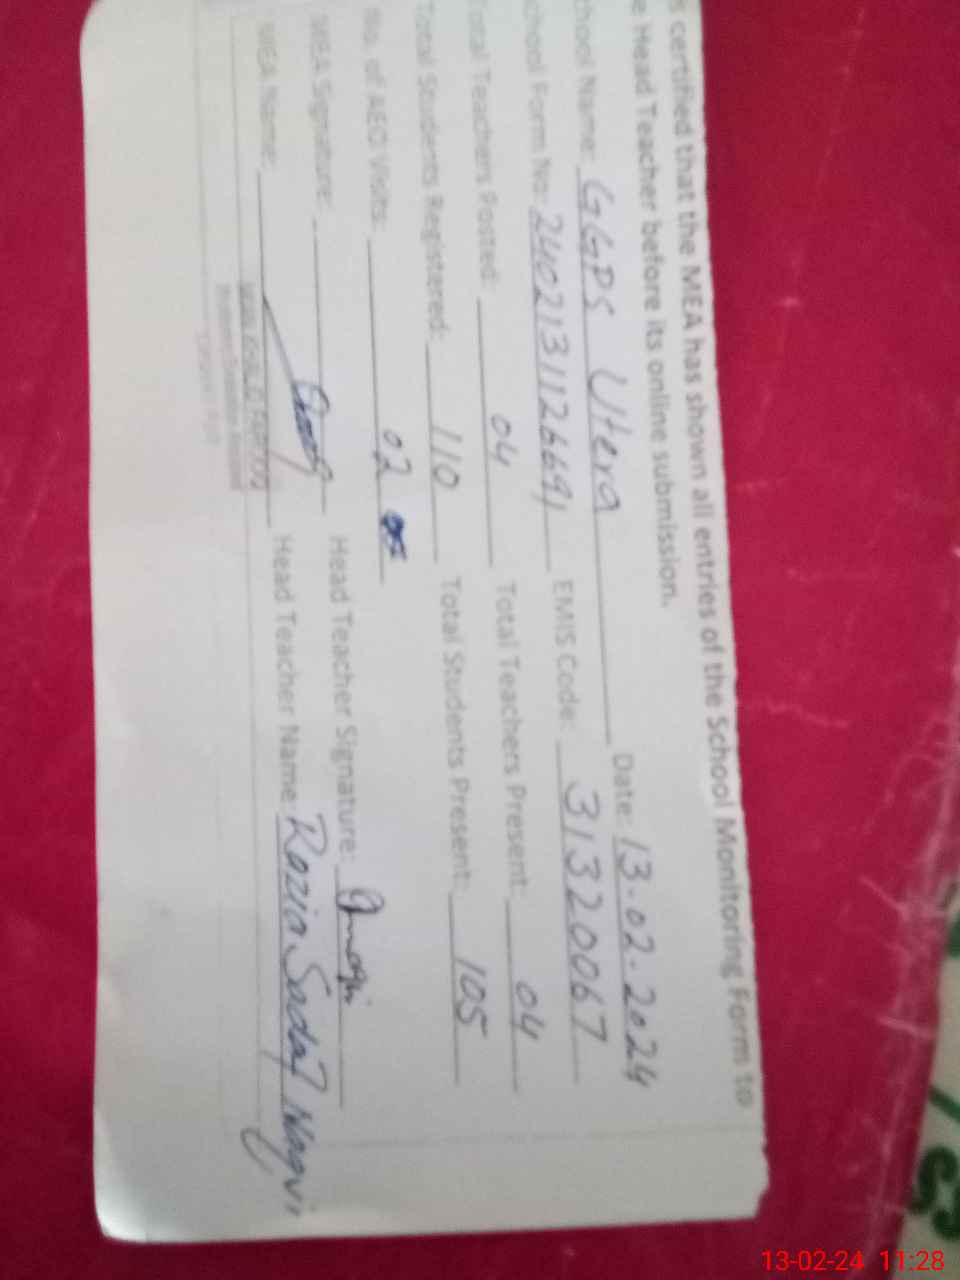 s certified that the MEA has shown all entries of the School Monitoring Form to
e Head Teacher before its online submission.
chool Name: GGPS Utera Date: 13.02.2024
chool Form No: EMIS Code: 31320067
Total Teachers Posted: 04 Total Teachers Present: 04
Total Students Registered: 110 Total Students Present: 105
No. of AEO Visits: 02
MEA Signature: Head Teacher Signature:
MEA Name: Head Teacher Name: Razia Sadaf Naqvi
13-02-24 11:28